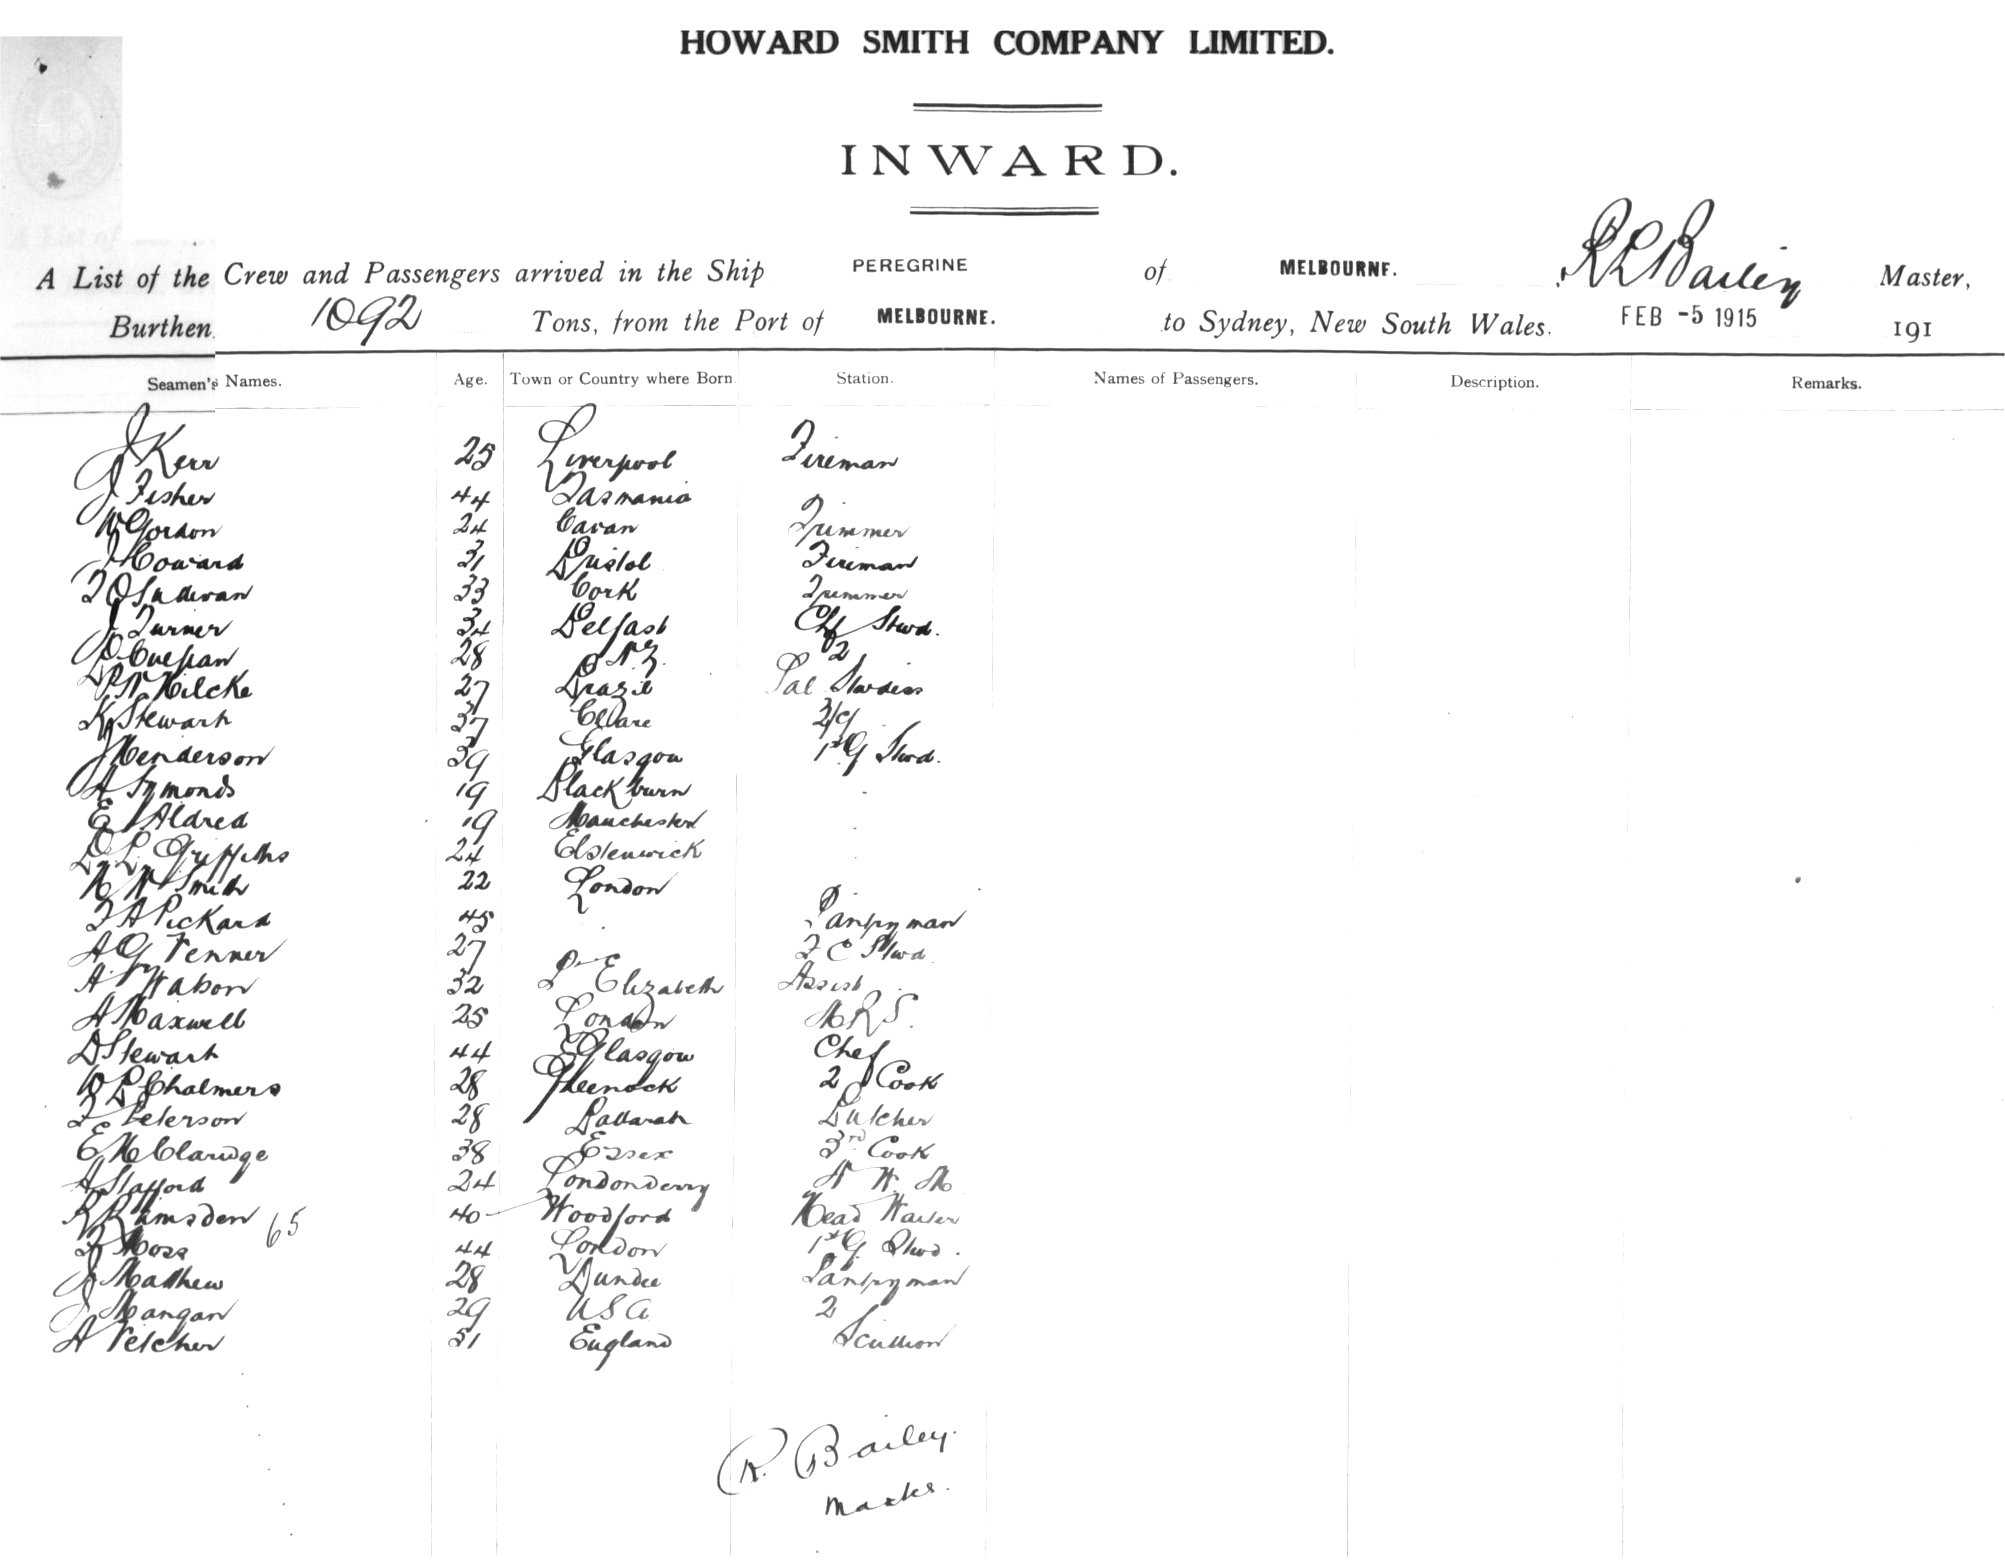 HOWARD SMITH COMPANY LIMITED.
INWARD.
A List of the Crew and Passengers arrived in the Ship PEREGRINE of MELBOURNE. R L Bailey Master,
Burthen 1092 Tons, from the Port of MELBOURNE. to Sydney, New South Wales. FEB -5 1915 191
Seamen's Names. Age. Town or Country where Born Station. Names of Passengers. Description. Remarks.
J Kerr 25 Liverpool Fireman
J Fisher 44 Tasmania
W Gordon 24 Cavan Trimmer
J Howard 31 Bristol Fireman
T O Sullivan 33 Cork Trimmer
J Turner 34 Belfast Chf Stwd.
28 N.Z. 2
27 Brazil Sal Stwdess
K Stewart 37 Clare
J Henderson 39 Glasgow 1st G Stwd.
A Symonds 19 Blackburn
E Aldred 19 Manchester
D L Griffiths 24 Elstenwick
H W Smith 22 London
T A Pickard 45 Pantryman
A G Venner 27 2 C Stwd
A Watson 32 Pt Elizabeth Assist
A Maxwell 25 London
D Stewart 44 Glasgow Chef
W L Chalmers 28 Greenock 2 Cook
F Peterson 28 Ballarat Butcher
E H Claridge 38 Essex 3rd Cook
A Stafford 24 Londonderry
R Ramsden 65 40 Woodford Head Waiter
F Moss 44 London 1st G Stwd.
J Mathew 28 Dundee Pantryman
J Mangan 29 USA 2
A Fetcher 51 England Scullion
R. Bailey.
Master.